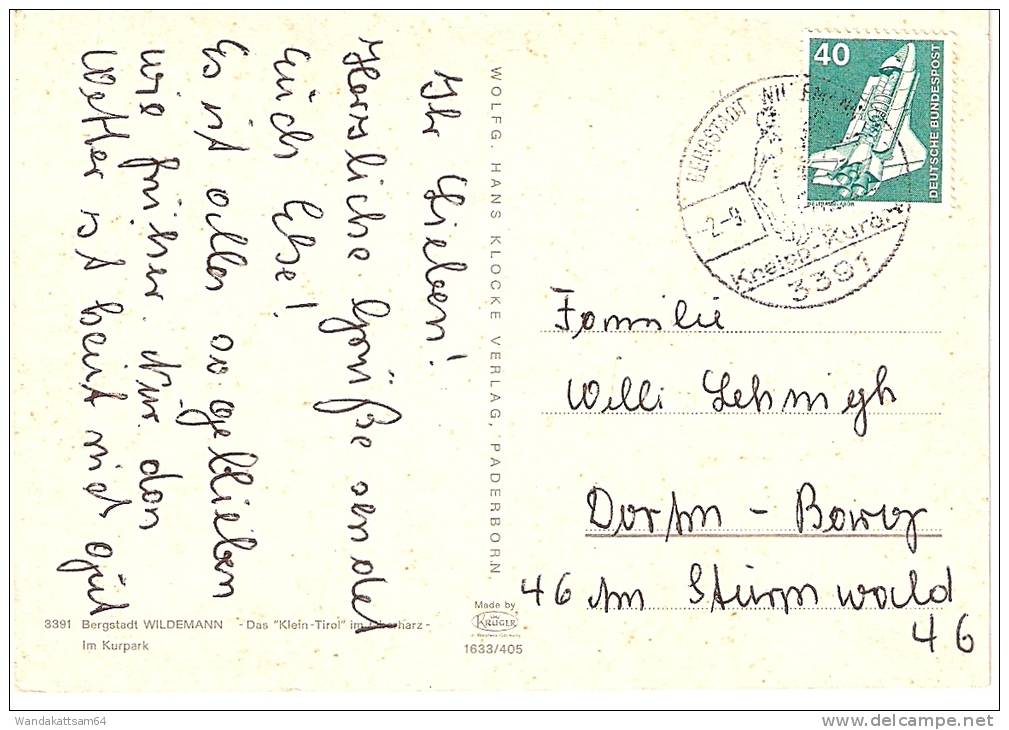 Ihr Lieben!
Herzliche Grüße sendet
Euch Else!
Es ist alles so geblieben
wie früher. Nur das
Wetter ist heut nicht gut
WOLFG. HANS KLOCKE VERLAG, PADERBORN.
40
DEUTSCHE BUNDESPOST
BERGSTADT WILDEMANN
-2.-9.
Kneipp-Kurort
3391
Familie
Willi Lehnigh
Dortm - Barop
46 Im Sturmwald
46
3391 Bergstadt WILDEMANN - Das "Klein-Tirol" im Oberharz -
Im Kurpark
Made by
KRÜGER
1633/405
Wandakattsam64
www.delcampe.net